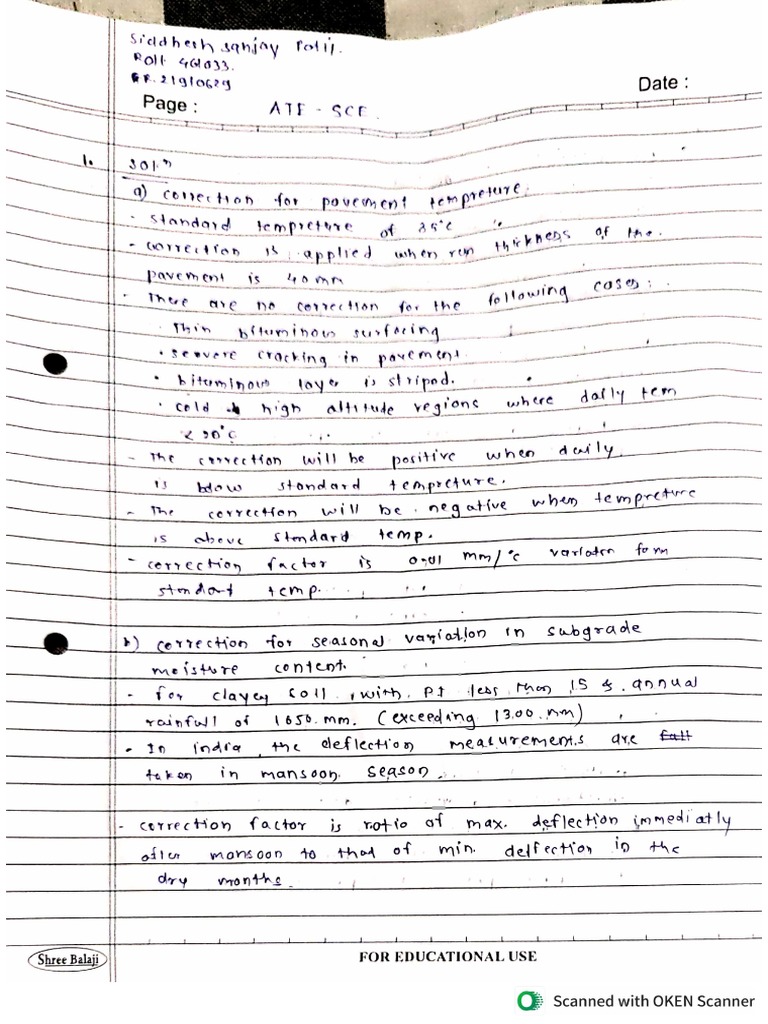 Siddhesh sanjay Patil.
Roll 461033.
GR. 21910629
Date :
Page : ATE - SCE.
1. sol.n
a) correction for pavement tempreture.
- standard tempreture of 35°c
- correction is applied when thickness of the.
pavement is 40mm
- There are no correction for the following cases:
. Thin bituminous surfacing
• seovere cracking in pavement.
• bituminous layer is striped.
• cold high altitude regions where daily tem
< 20°c
- The correction will be positive when daily
is blow standard tempreture.
- The correction will be negative when tempreture
is above standard temp.
- correction factor is 0.01 mm/°c form
standart temp.
b) correction for seasonal variation in subgrade
moisture content.
- for clayey soil, with PI less than 15 & annual
rainfall of 1650.mm. (exceeding 1300.mm)
- In india the deflection measurements are
taken in mansoon season.
- correction factor is ratio of max. deflection immediatly
after monsoon to that of min. delfection in the
dry months.
Shree Balaji
FOR EDUCATIONAL USE
Scanned with OKEN Scanner